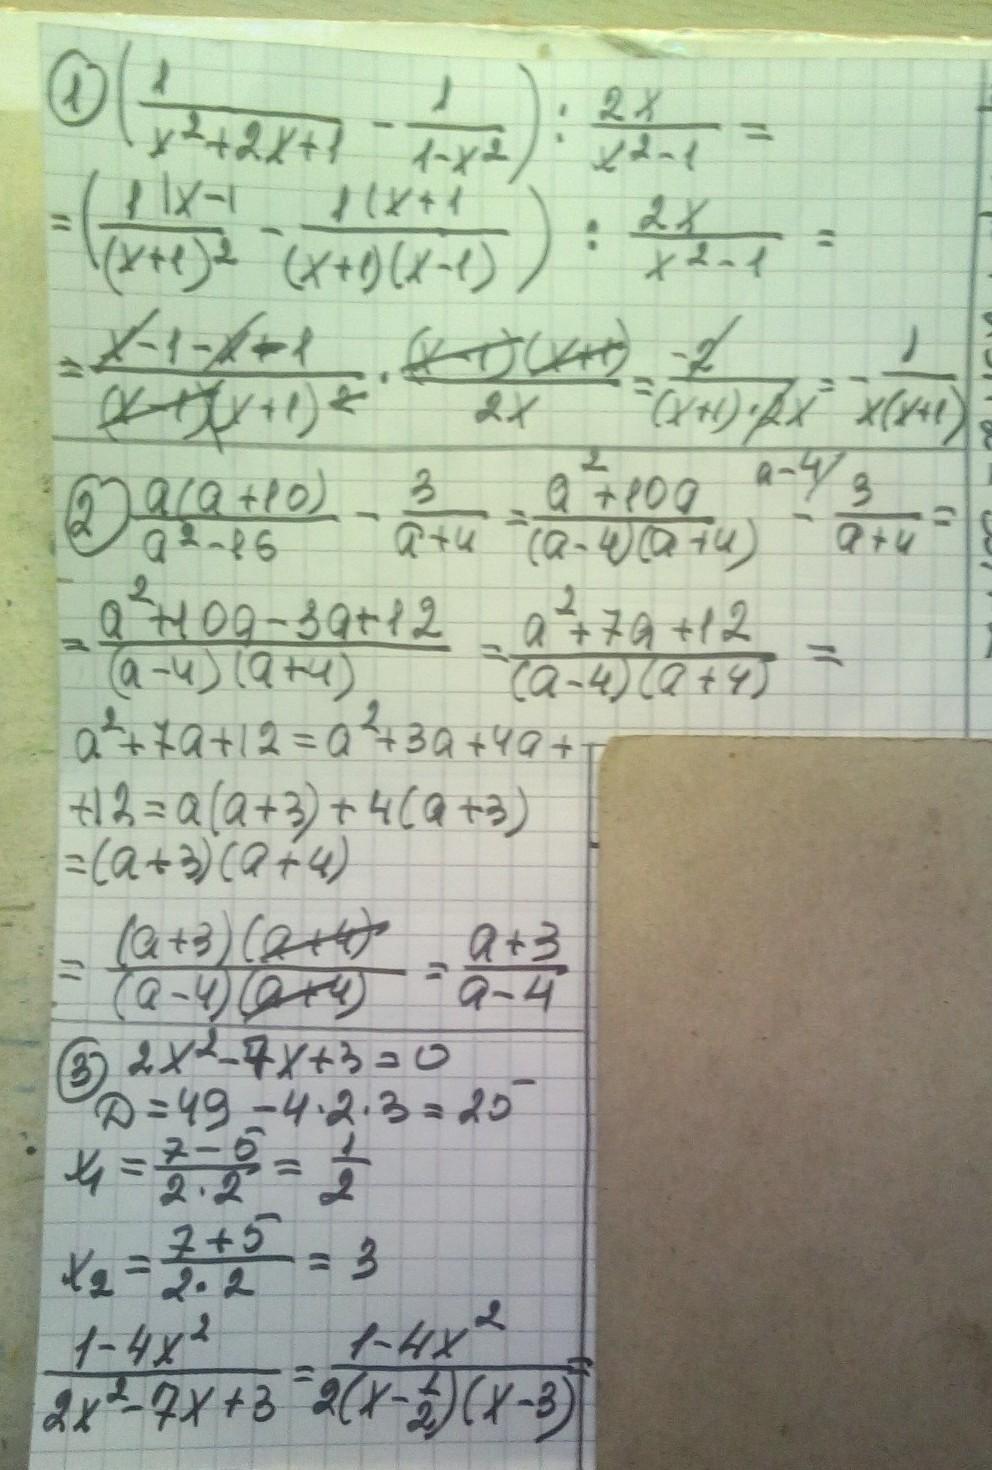 ① (1/(x²+2x+1) - 1/(1-x²)) : 2x/(x²-1) =
= (1 |x-1/(x+1)² - 1 (x+1/(x+1)(x-1)) : 2x/(x²-1) =
= (x-1-x-1)/((x-1)(x+1)²) · (x-1)(x+1)/2x = -2/((x+1)·2x) = - 1/x(x+1)
② a(a+10)/(a²-16) - 3/(a+4) = (a²+10a)/((a-4)(a+4)) - a-4/ 3/(a+4) =
= (a²+10a-3a+12)/((a-4)(a+4)) = (a²+7a+12)/((a-4)(a+4)) =
a²+7a+12 = a²+3a+4a+
+12 = a(a+3) + 4(a+3)
= (a+3)(a+4)
= (a+3)(a+4)/((a-4)(a+4)) = (a+3)/(a-4)
③ 2x²-7x+3 = 0
D = 49 - 4·2·3 = 25
x₁ = (7-5)/(2·2) = 1/2
x₂ = (7+5)/(2·2) = 3
(1-4x²)/(2x²-7x+3) = (1-4x²)/(2(x-1/2)(x-3)) =